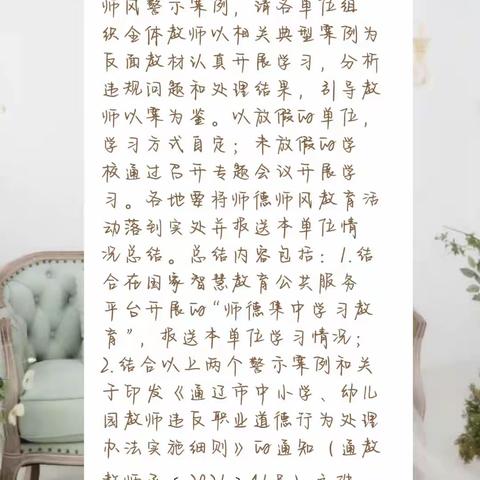 师风警示案例，请各单位组
织全体教师以相关典型案例为
反面教材认真开展学习，分析
违规问题和处理结果，引导教
师以案为鉴。以放假的单位，
学习方式自定；未放假的学
校通过召开专题会议开展学
习。各地要将师德师风教育活
动落到实处并报送本单位情
况总结。总结内容包括：1.结
合在国家智慧教育公共服务
平台开展的“师德集中学习教
育”，报送本单位学习情况；
2.结合以上两个警示案例和关
于印发《通辽市中小学、幼儿
园教师违反职业道德行为处理
办法实施细则》的通知（通教